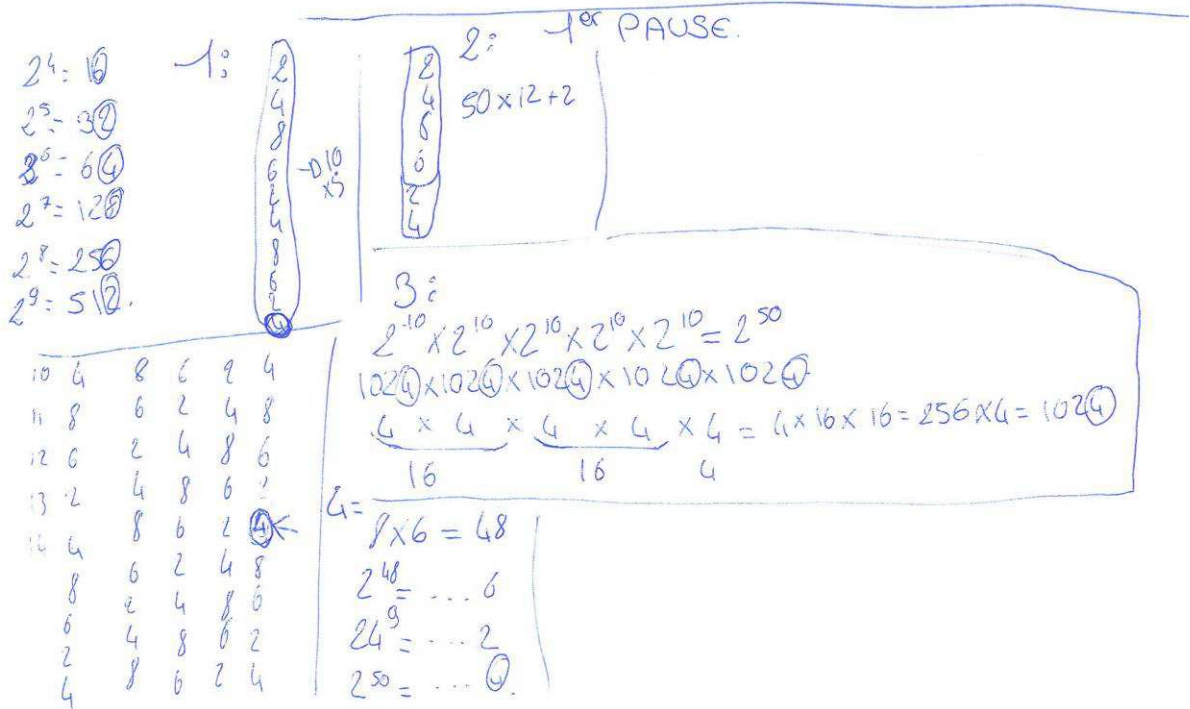 1er PAUSE.
2^4 = 16
2^5 = 32
2^6 = 64
2^7 = 128
2^8 = 256
2^9 = 512.
1:
2
4
8
6
2
4
8
6
2
4
→ 10
x5
2:
2
4
8
6
2
4
50x12+2
3:
2^10 x 2^10 x 2^10 x 2^10 x 2^10 = 2^50
1024 x 1024 x 1024 x 1024 x 1024
4 x 4 x 4 x 4 x 4 = 4 x 16 x 16 = 256 x 4 = 1024
16 16 4
10 4 8 6 2 4
11 8 6 2 4 8
12 6 2 4 8 6
13 2 4 8 6
14 4 8 6 2 4 ←
8 6 2 4 8
6 2 4 8 6
2 4 8 6 2
4 8 6 2 4
4=
8x6 = 48
2^48 = ... 6
24^9 = ... 2
2^50 = ... 4.